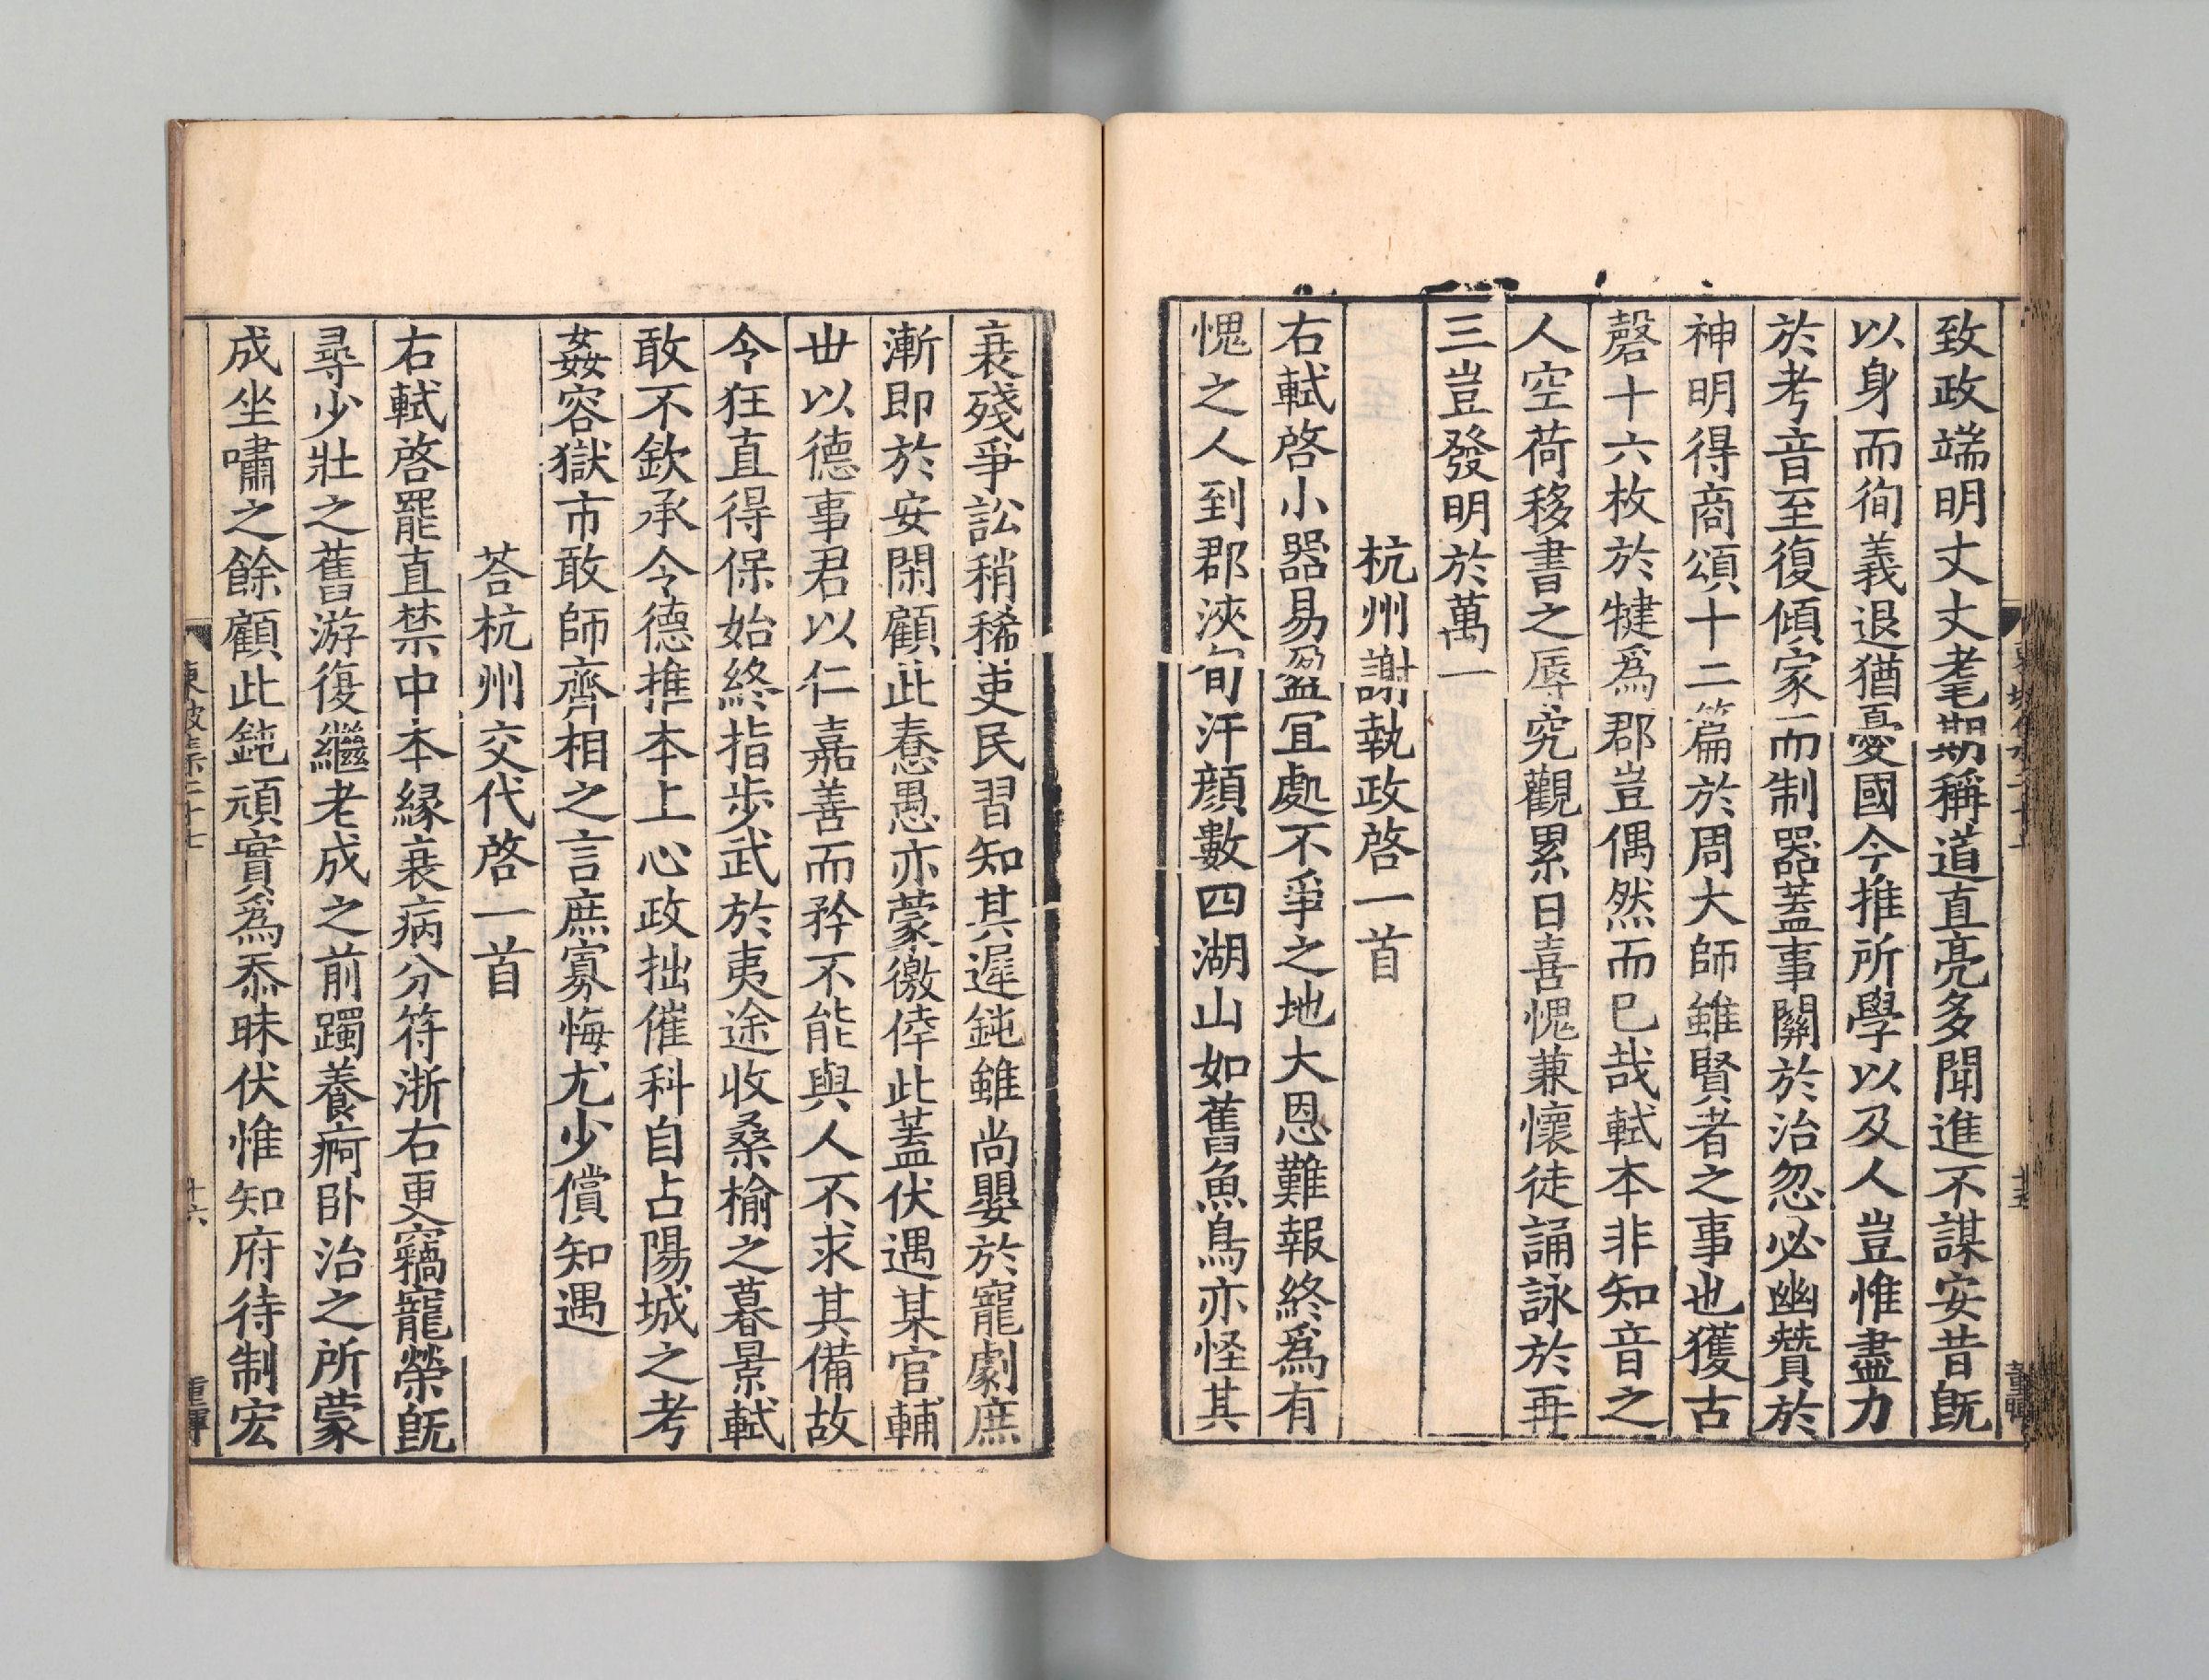 致政端明丈丈耄期稱道直亮多聞進不謀安昔旣
以身而徇義退猶憂國今推所學以及人豈惟盡力
於考音至復傾家而制器蓋事關於治忽必幽贊於
神明得商頌十二篇於周大師雖賢者之事也獲古
磬十六枚於犍爲郡豈偶然而巳哉軾本非知音之
人空荷移書之辱究觀累日喜愧兼懷徒誦詠於再
三豈發明於萬一
杭州謝執政啓一首
右軾啓小器易盈冝處不爭之地大恩難報終爲有
愧之人到郡浹旬汗顔數四湖山如舊魚鳥亦怪其
衰殘爭訟稍稀吏民習知其遲鈍雖尚嬰於寵劇庶
漸即於安閑顧此惷愚亦蒙徼倖此蓋伏遇某官輔
丗以德事君以仁嘉善而矜不能與人不求其備故
令狂直得保始終指步武於夷途收桑榆之暮景軾
敢不欽承令德推本上心政拙催科自占陽城之考
姦容獄市敢師齊相之言庶寡悔尤少償知遇
荅杭州交代啓一首
右軾啓罷直禁中本緣衰病分符浙右更竊寵榮旣
尋少壯之舊游復繼老成之前躅養痾卧治之所蒙
成坐嘯之餘顧此鈍頑實爲忝昧伏惟知府待制宏
東坡集三十七
十六